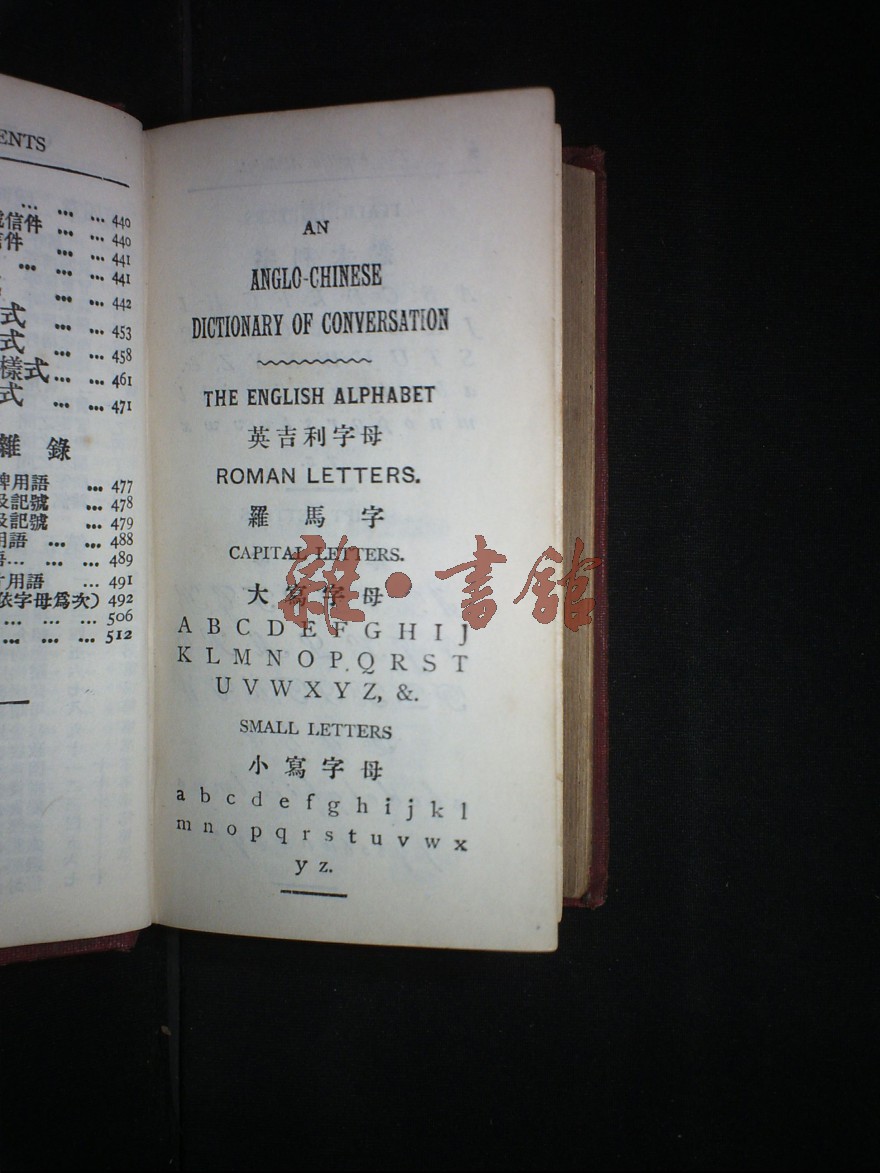 ENTS
... ... ... 440
信件 ... ... 440
信件 ... ... 441
... ... ... 441
... ... 442
式 ... ... 453
式 ... ... 458
樣式 ... ... 461
式 ... ... 471
雜 錄
牌用語 ... 477
及記號 ... 478
及記號 ... 479
用語 ... ... 488
語... ... ... 489
用語 ... 491
依字母爲次) 492
... ... ... 506
... ... ... 512
AN
ANGLO-CHINESE
DICTIONARY OF CONVERSATION
THE ENGLISH ALPHABET
英吉利字母
ROMAN LETTERS.
羅 馬 字
CAPITAL LETTERS.
大 寫 字 母
A B C D E F G H I J
K L M N O P Q R S T
U V W X Y Z, &.
SMALL LETTERS
小 寫 字 母
a b c d e f g h i j k l
m n o p q r s t u v w x
y z.
雜·書館